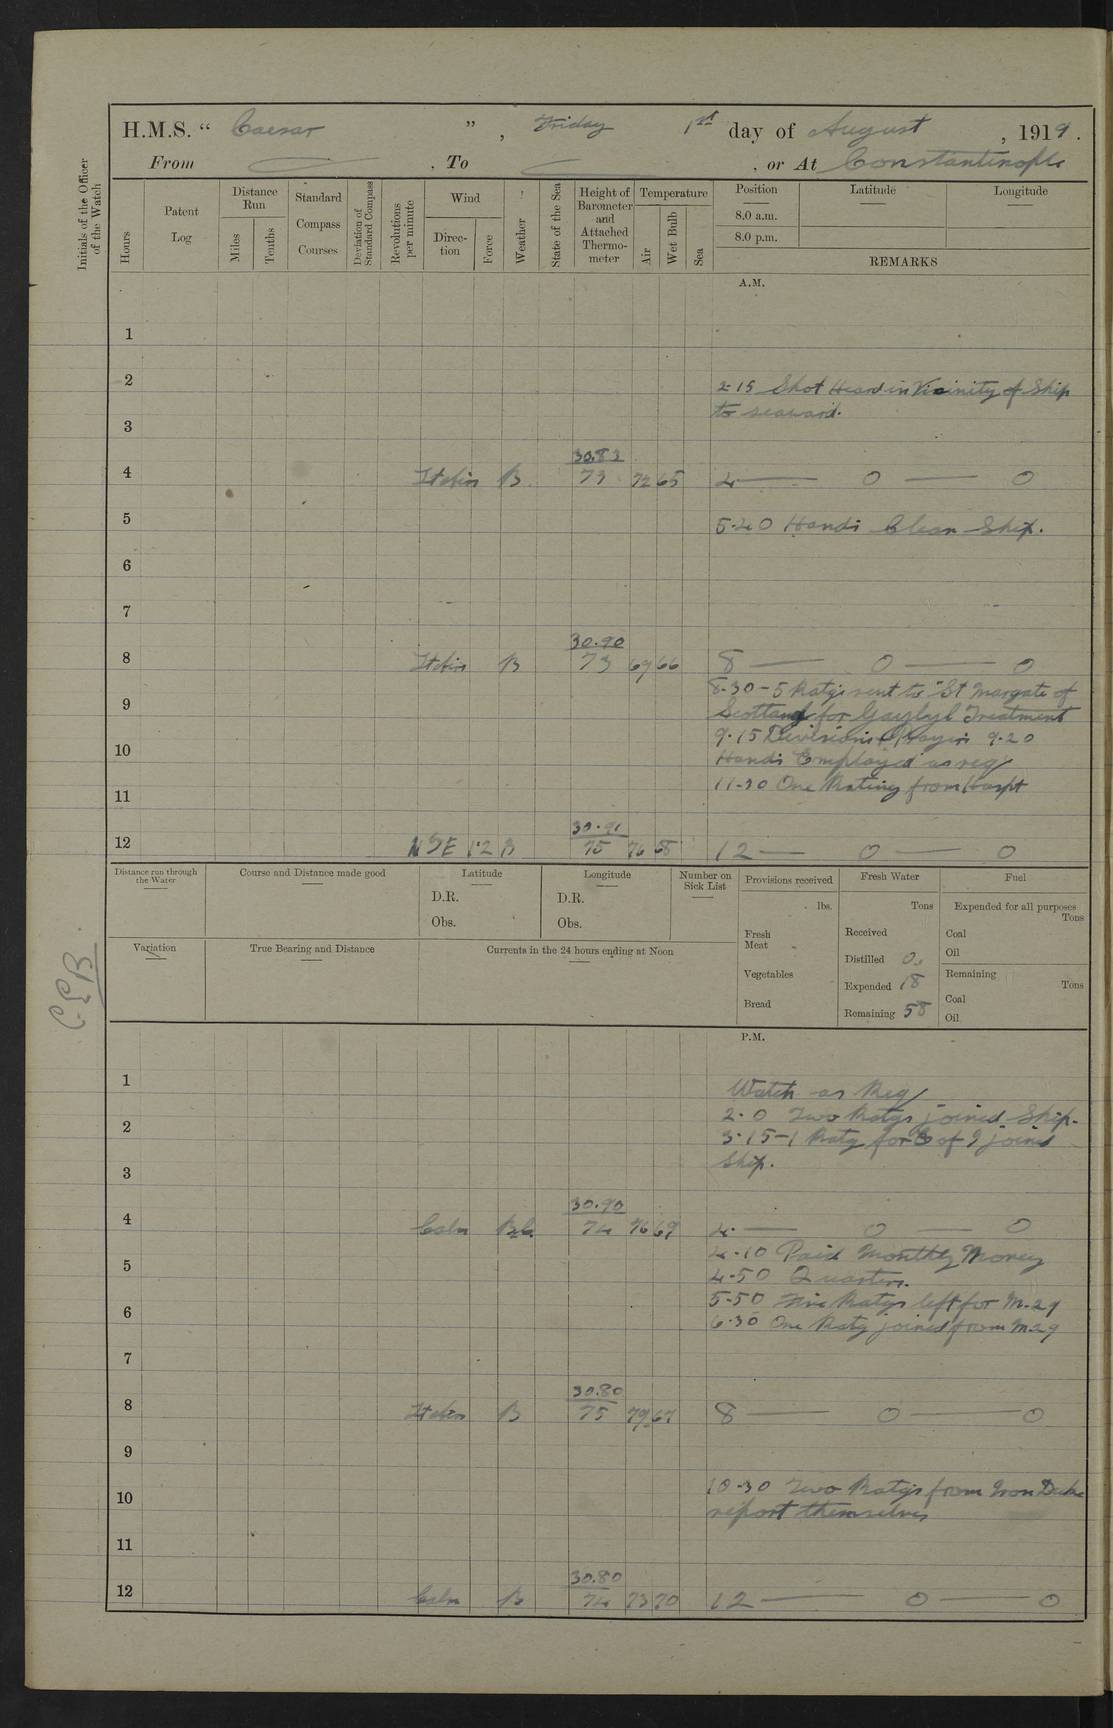 H.M.S. “ Caesar ” , Friday 1st day of August , 1919 .
From . To , or At Constantinople
Initials of the Officer of the Watch
Hours
Patent Log
Distance Run
Miles
Tenths
Standard Compass Courses
Deviation of Standard Compass
Revolutions per minute
Wind
Direction
Force
Weather
State of the Sea
Height of Barometer and Attached Thermometer
Temperature
Air
Wet Bulb
Sea
Position
8.0 a.m.
8.0 p.m.
Latitude
Longitude
REMARKS
A.M.
1
2
2.15 Shot Heard in Vicinity of Ship
to seaward.
3
30.83
4 B 73 72 65 4 — 0 — 0
5
5.40 Hands Clean Ship.
6
7
30.90
8 B 73 69 66 8 — 0 — 0
8.30 – 5 Ratgs sent to "St Margate of
9
Scotland for Treatment
9.15 Divisions Prayers 9.20
10
Hands Employed as req
11.30 One Rating from Hospt
11
30.91
12 1.2 B 75 76 68 12 — 0 — 0
Distance run through the Water
Course and Distance made good
Latitude
D.R.
Obs.
Longitude
D.R.
Obs.
Number on Sick List
Provisions received
lbs.
Fresh Meat
Vegetables
Bread
Fresh Water
Tons
Received
Distilled 0.
Expended 18
Remaining 58
Fuel
Expended for all purposes
Tons
Coal
Oil
Remaining
Tons
Coal
Oil
Variation
True Bearing and Distance
Currents in the 24 hours ending at Noon
C.E.B
P.M.
1
Watch as Req
2.0 Two Ratgs joined Ship.
2
3.15 – 1 Ratg for joined
Ship.
3
30.90
4 Calm B.C. 74 76 69 4. — 0 — 0
4.10 Paid Monthly Money
5
4.50 Quarters.
5.50 Five Ratgs left for M.29
6
6.30 One Ratg joined from M.29
7
30.80
8 B 75 79 67 8 — 0 — 0
9
10.30 Two Ratgs from Iron Duke
10
report themselves
11
30.80
12 Calm B 74 73 70 12 — 0 — 0